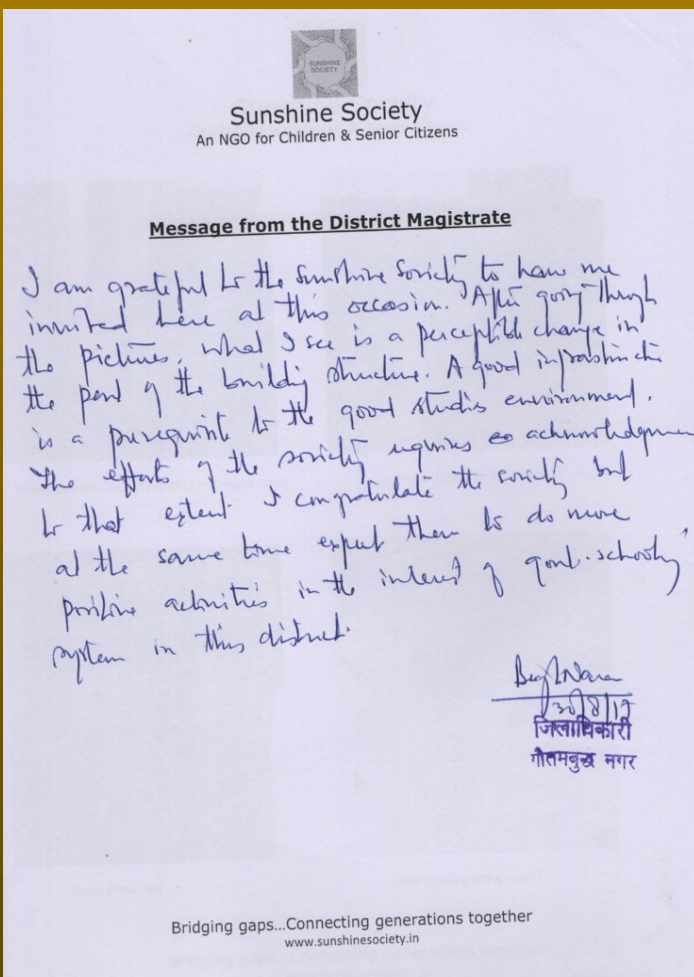 SUNSHINE
SOCIETY
Sunshine Society
An NGO for Children & Senior Citizens
Message from the District Magistrate
I am grateful to the Sunshine Society to have me
invited here at this occasion. After going through
the pictures, what I see is a perceptible change in
the part of the building structure. A good infrastructure
is a prerequisite to the good studies environment.
The efforts of the society requires acknowledgemen
to that extent I congratulate the society but
at the same time expect them to do more
positive activities in the interest of govt. schooling
system in this district.
30/8/17
जिलाधिकारी
गौतमबुद्ध नगर
Bridging gaps...Connecting generations together
www.sunshinesociety.in